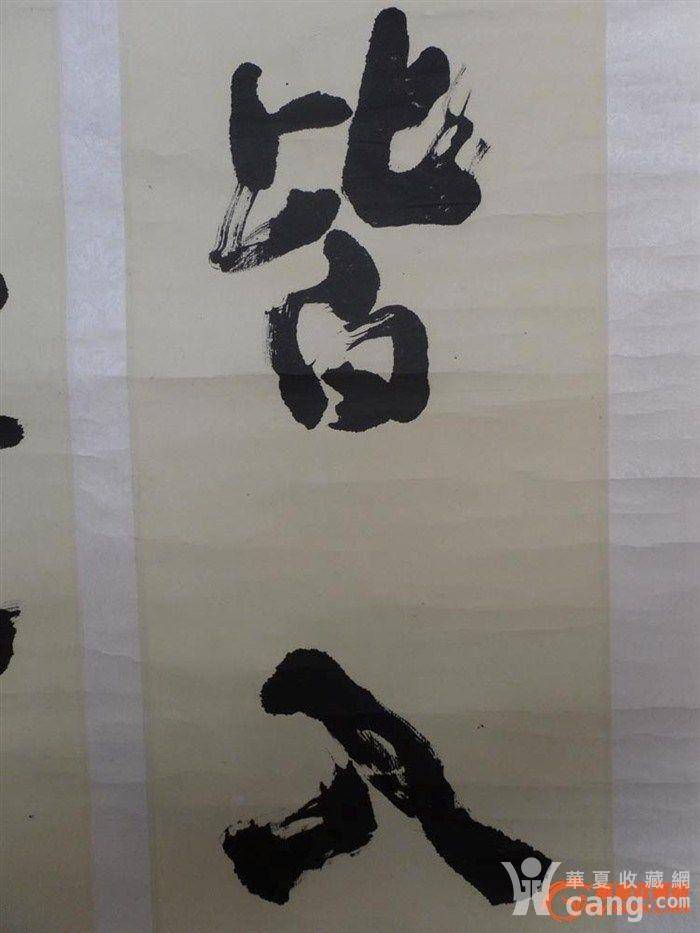 皆
入
華夏收藏網
cang.com